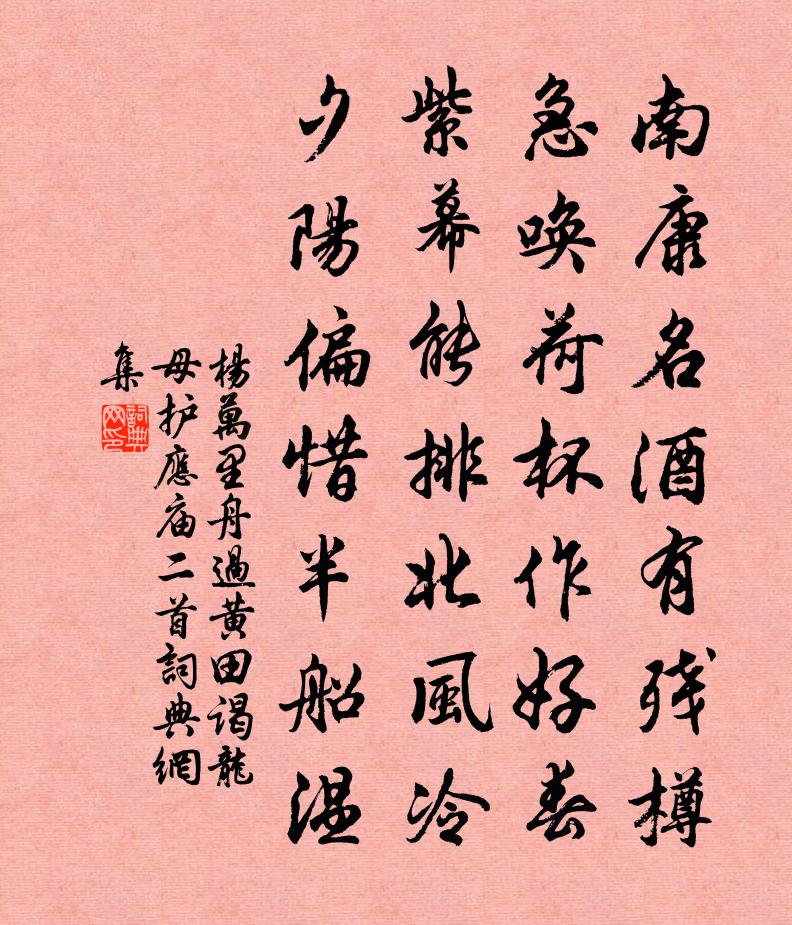 南康名酒有残樽
急唤荷杯作好春
紫幕能排北風冷
夕陽偏惜半船温
楊萬里舟過黄田谒龍
母护應庙二首詞典網
集
詞典
网印